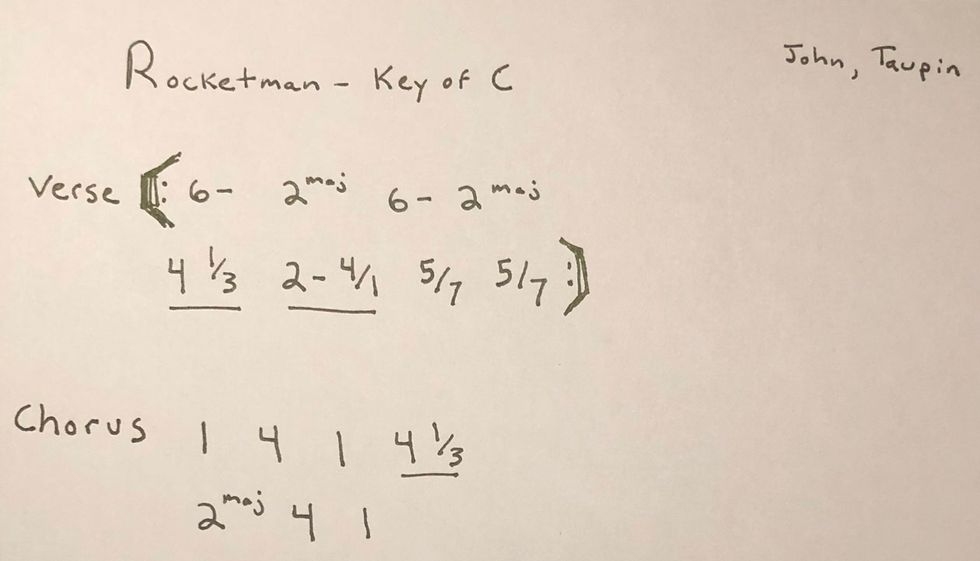 Rocketman - Key of C
John, Taupin
Verse [: 6- 2maj 6- 2maj
4 1/3 2- 4/1 5/7 5/7 :]
Chorus 1 4 1 4 1/3
2maj 4 1